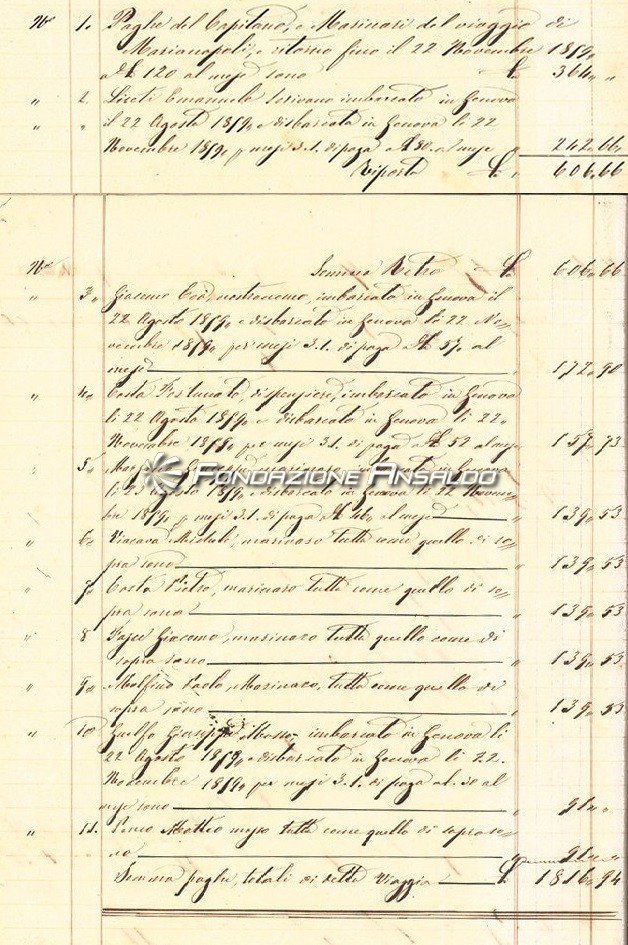 No 1. Paghe del Capitano, e Marinari del viaggio di
Marianopoli, e ritorno fino il 22 Novembre 1859
a £ 120 al mese sono £. 364 "
" 2. Emanuele scrivano imbarcato in Genova
" " il 22 Agosto 1859 e disbarcato in Genova li 22
Novembre 1859 p mesi 3.1. di paga a £ 80. al mese " 242.66
Riporto £. 606.66
No Somma Retro £. 606.66
" 3 Giacomo nostromo, imbarcato in Genova il
22 Agosto 1859 e disbarcato in Genova li 22 No=
vembre 1859 per mesi 3.1. di paga a £ 57. al
mese " 172.90
" 4 Costa Fortunato, dispensiere, imbarcato in Genova
li 22 Agosto 1859 e disbarcato in Genova li 22
Novembre 1859 per mesi 3.1. di paga a £ 52 al mese " 157.73
" 5 marinaro imbarcato in Genova
FONDAZIONE ANSALDO
li 23 Agosto 1859 e disbarcato in Genova li 22 Novem=
bre 1859 p mesi 3.1. di paga a £ 46 al mese " 139.53
" 6 marinaro tutto come quello di so=
pra sono " 139.53
" 7 Costa Pietro, marinaro tutto come quello di so=
pra sono " 139.53
" 8 Giacomo, marinaro tutto quello come di
sopra sono " 139.53
" 9 Molfino Paolo Marinaro, tutto come quello di
sopra sono " 139.53
" 10 Giuseppe Mosso imbarcato in Genova li
22 Agosto 1859 e disbarcato in Genova li 22.
Novembre 1859 per mesi 3.1. di paga a £. 30 al
mese sono " 91 "
" 11. Matteo mozzo tutto come quello di sopra so=
no " 91 "
Somma paghe, totali di detto Viaggio £. 1816.94